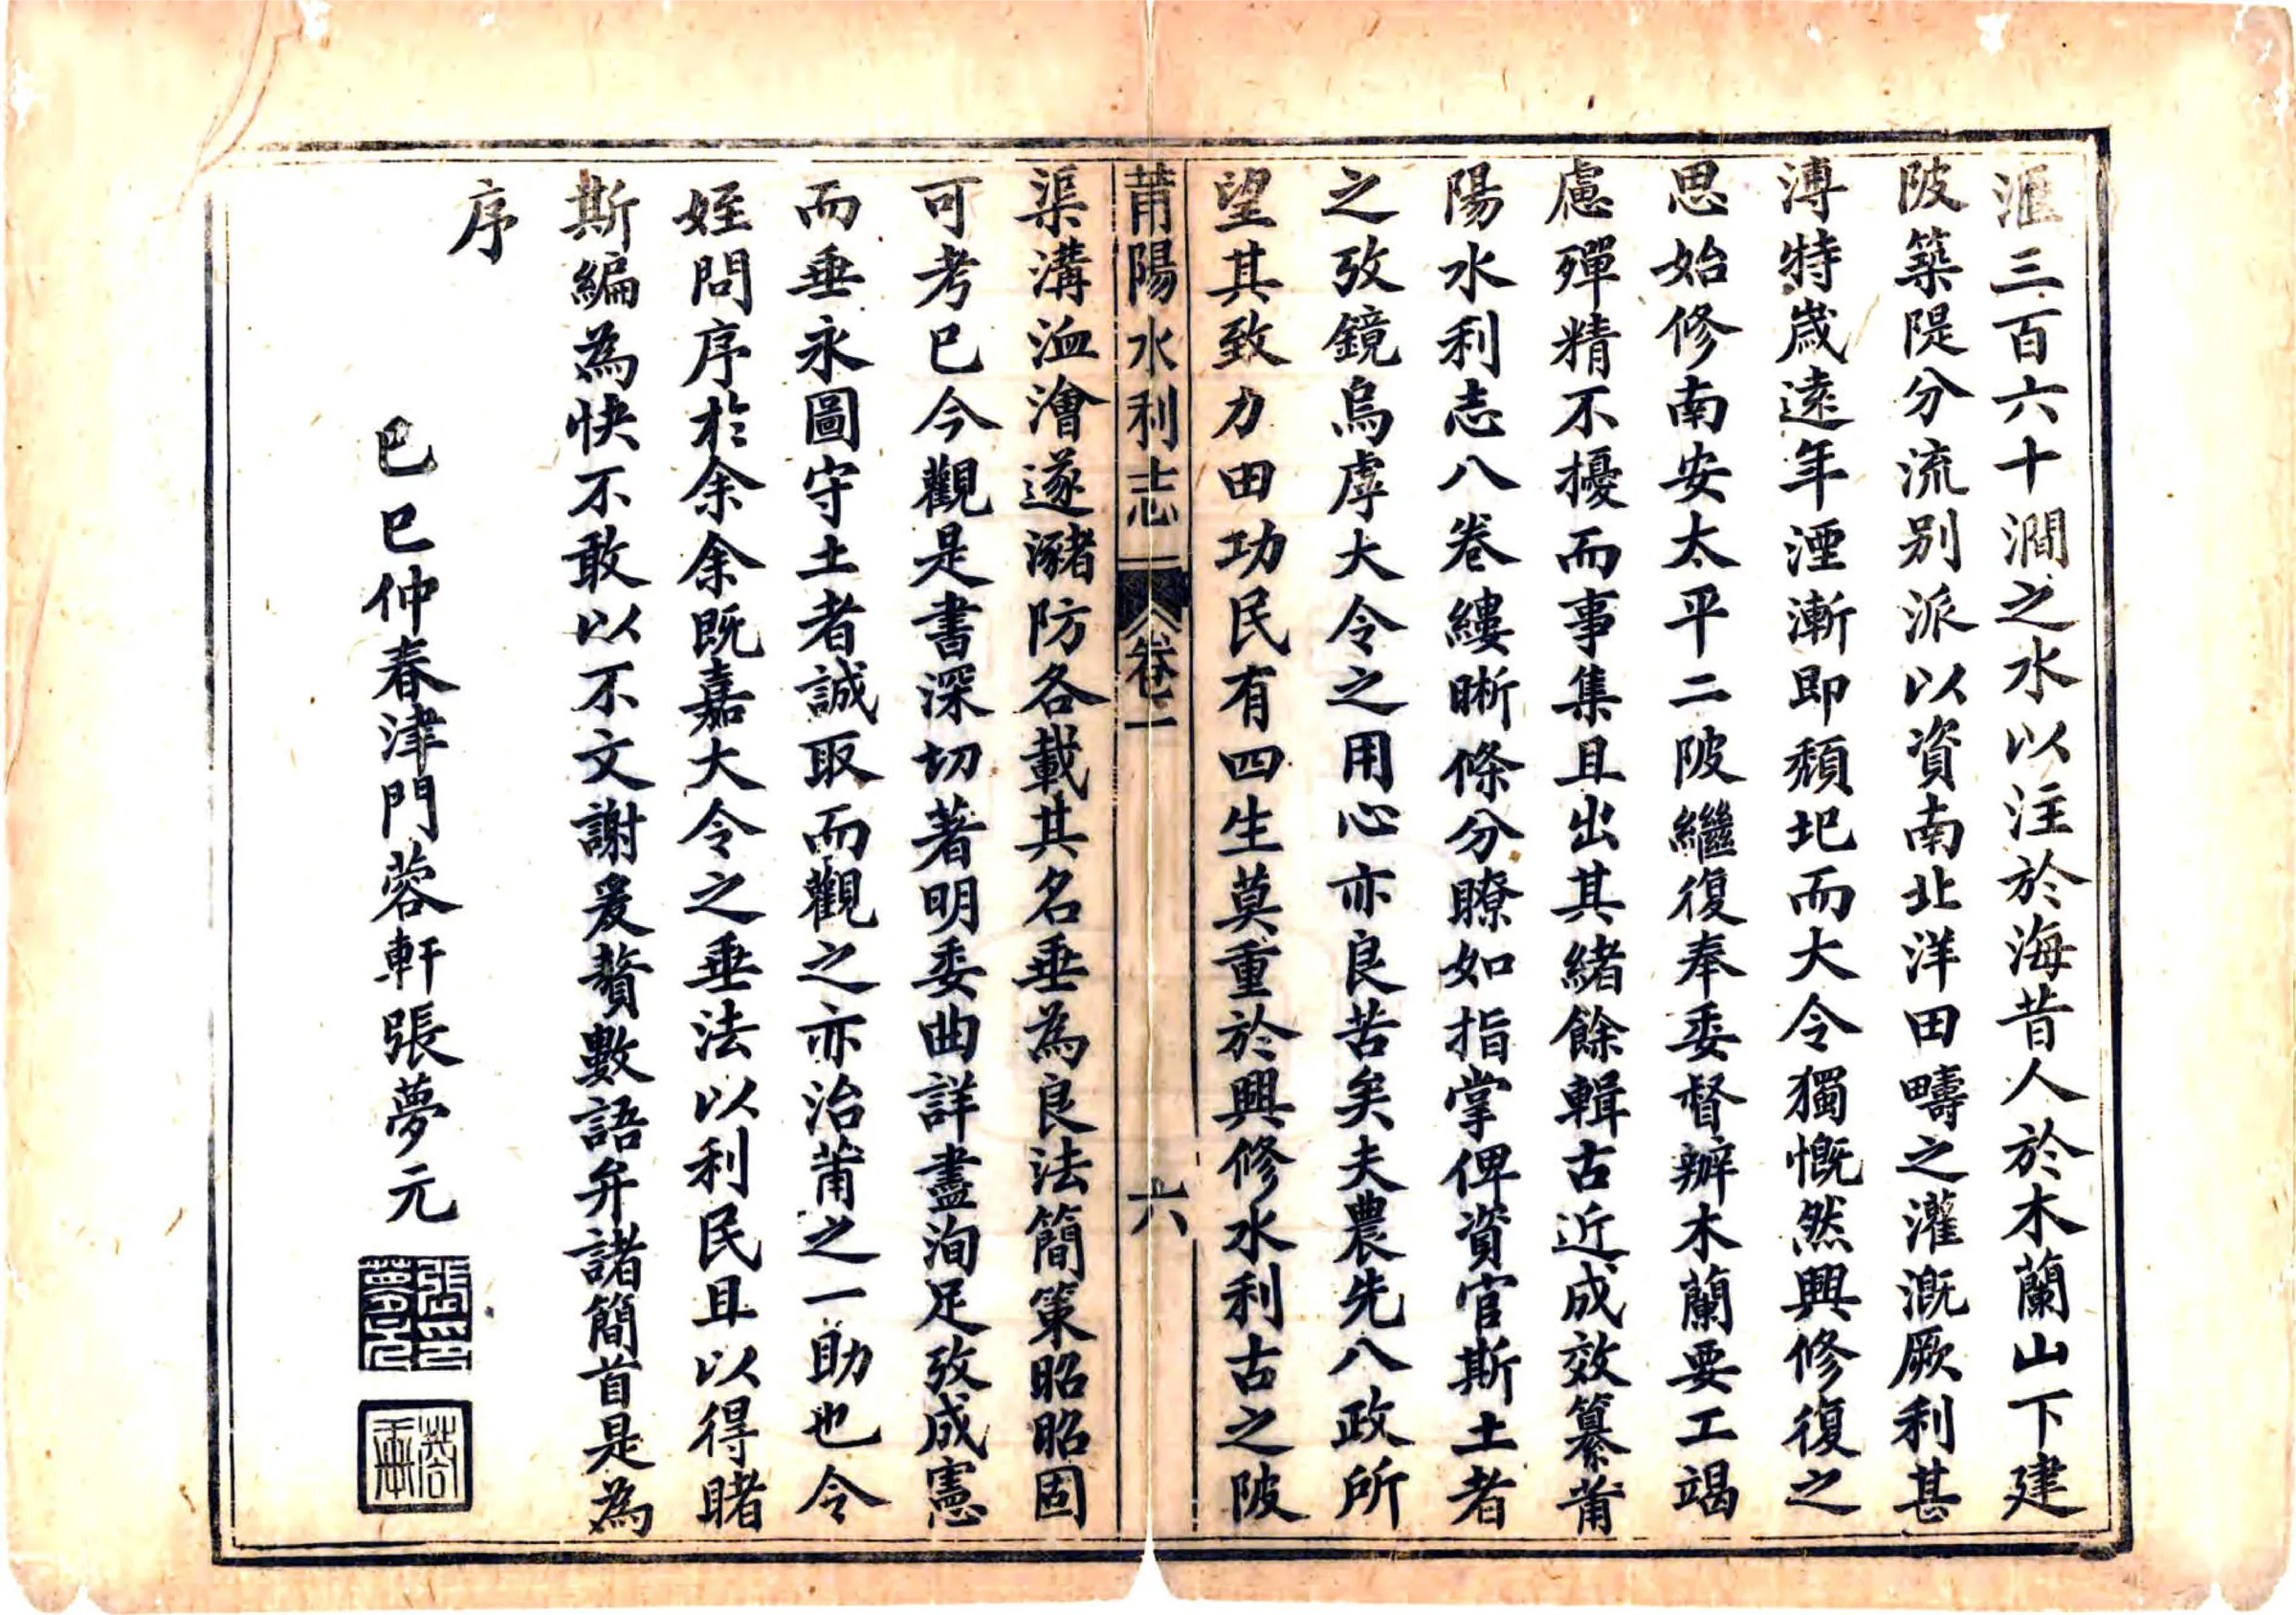 滙三百六十澗之水以注於海昔人於木蘭山下建
陂築隄分流别派以資南北洋田疇之灌溉厥利甚
溥特歲遠年湮漸即頹圮而大令獨慨然興修復之
思始修南安太平二陂繼復奉委督辦木蘭要工竭
慮殫精不擾而事集且出其緒餘輯古近成效纂莆
陽水利志八卷縷晰條分瞭如指掌俾資官斯土者
之攷鏡烏虖大令之用心亦良苦矣夫農先八政所
望其致力田功民有四生莫重於興修水利古之陂
莆陽水利志 卷一 六
渠溝洫澮遂瀦防各載其名垂為良法簡策昭昭固
可考已今觀是書深切著明委曲詳盡洵足攷成憲
而垂永圖守土者誠取而觀之亦治莆之一助也令
姪問序於余余既嘉大令之垂法以利民且以得睹
斯編為快不敢以不文謝爰贅數語弁諸簡首是為
序
乙巳仲春津門蓉軒張夢元
張夢元印
蓉軒